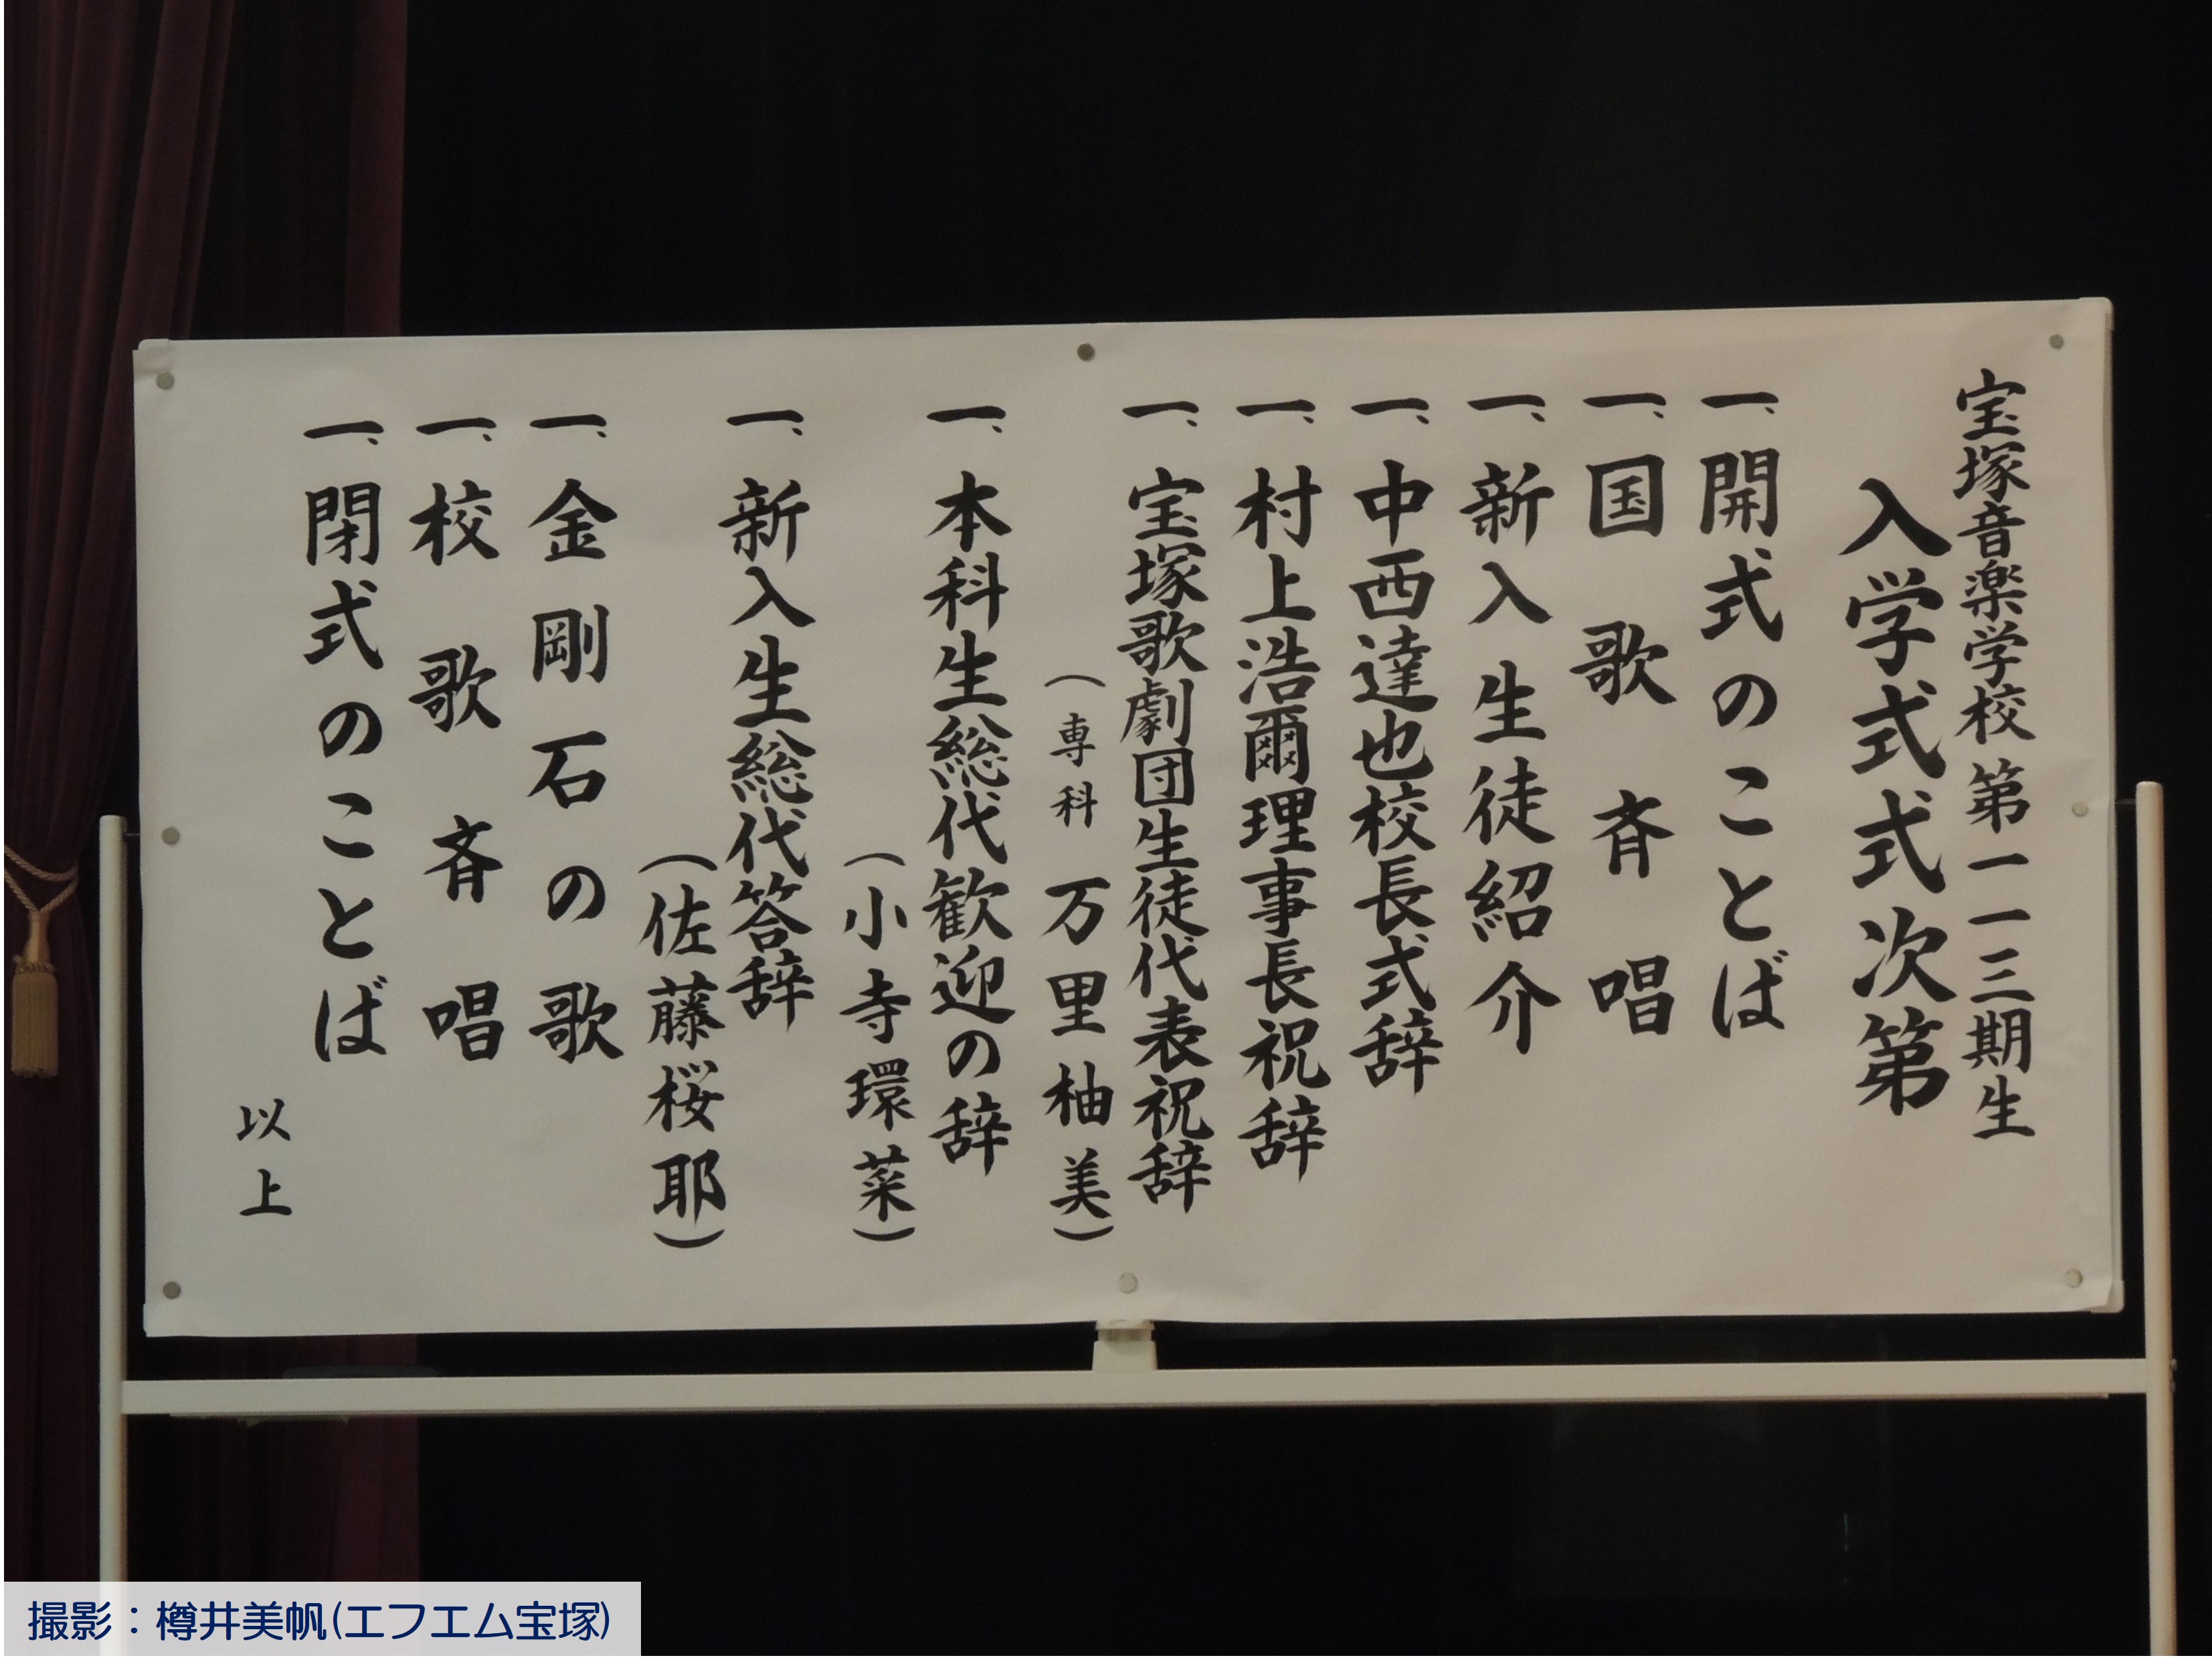 宝塚音楽学校 第一一三期生
入学式式次第
一、開式のことば
一、国歌斉唱
一、新入生徒紹介
一、中西達也校長式辞
一、村上浩爾理事長祝辞
一、宝塚歌劇団生徒代表祝辞
（専科 万里柚美）
一、本科生総代歓迎の辞
（小寺環菜）
一、新入生総代答辞
（佐藤桜耶）
一、金剛石の歌
一、校歌斉唱
一、閉式のことば
以上
撮影：樽井美帆(エフエム宝塚)